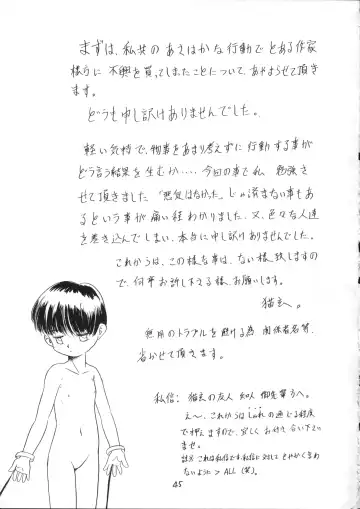 まずは、私共のあさはかな行動でとある作家
様方に不興を買ってしまったことについて、あやまらせて頂き
ます。
どうも申し訳ありませんでした。
軽い気持で、物事をあまり考えずに行動する事が
どう言う結果を生むか・・・・、今回の事で私 勉強さ
せて頂きました「悪気はなかった」じゃ済まない事もあ
るという事が痛い程わかりました。又、色々な人達
を巻き込んでしまい、本当に申し訳ありませんでした。
これからは、この様な事は、ない様、致しますの
で、何卒お許し下さる様、お願いします。
猫玄。
無用のトラブルを避ける為 関係者名等、
省かせて頂きます。
私信：猫玄の友人 知人 御先輩方へ。
え〜、これからはしゃれの通じる程度
で押えますので、宜しくお付き合い下さい
ませ。
45